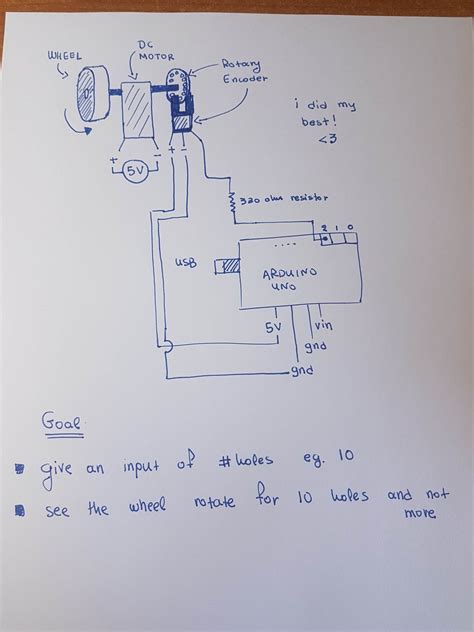 WHEEL
DC
MOTOR
Rotary
Encoder
i did my
best!
<3
+ -
5V
+ -
320 ohm resistor
2 1 0
....
USB
ARDUINO
UNO
5V
vin
gnd
gnd
Goal:
give an input of #holes eg. 10
see the wheel rotate for 10 holes and not
more